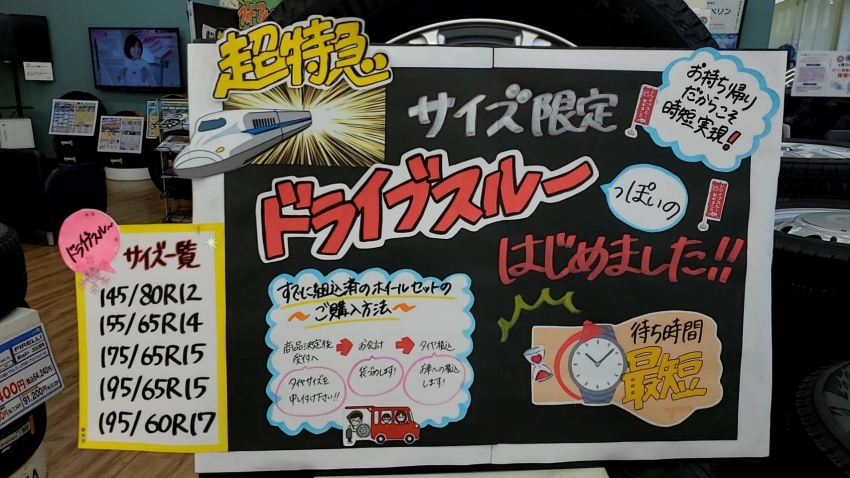 超特急
サイズ限定
お持ち帰り
だからこそ
時短実現!
ドライブスルー
っぽいの
はじめました!!
ドライブスルー
サイズ一覧
145/80R12
155/65R14
175/65R15
195/65R15
195/60R17
すでに組込済のホイールセットの
～ご購入方法～
商品決定後
受付へ
お会計
タイヤ積込
タイヤサイズを
申し付け下さい!!
袋づめします!
お車への積込
します!
待ち時間
最短
PIRELLI